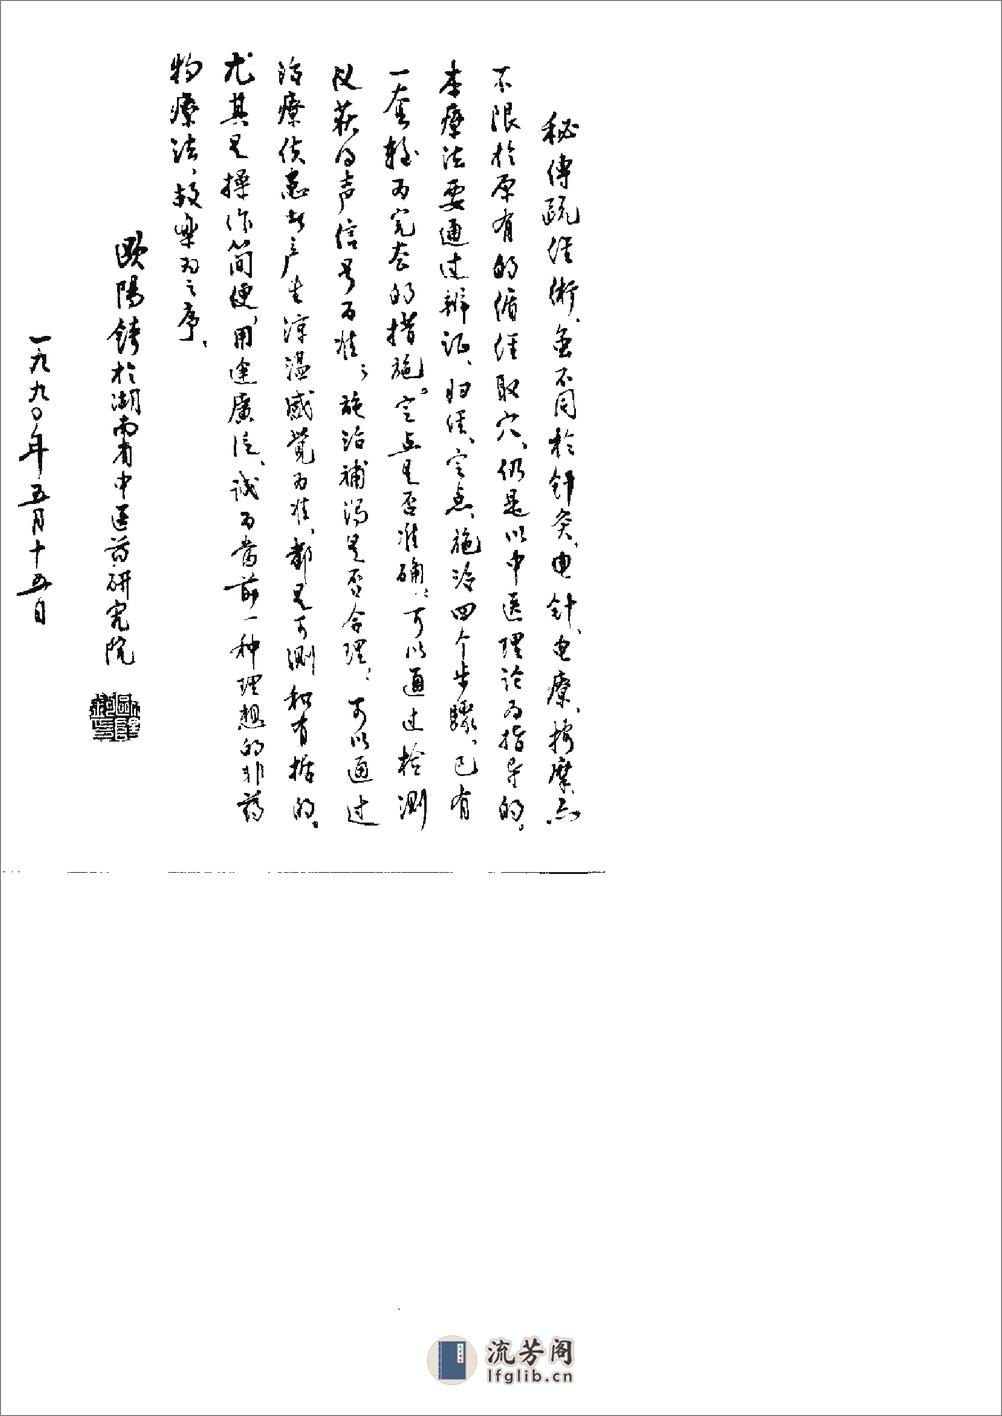 秘傳疏経術、查不同於针灸、电针、电療、按摩、亦
不限於原有的循径取穴、仍是以中医理论为指导的。
本療法要通过辨证、归经、定点、施治四个步驟、已有
一套較为完整的措施。定点是否准确，可以通过检测
仪获得声信号为准；施治補瀉是否合理，可以通过
治療使患者产生凉温感覚为准、都是可測和有据的。
尤其是操作简便，用途廣泛、诚为当前一种理想的非药
物療法、故樂为之序。
歐陽錡於湖南省中医药研究院
一九九〇年五月十五日
流芳阁
lfglib.cn